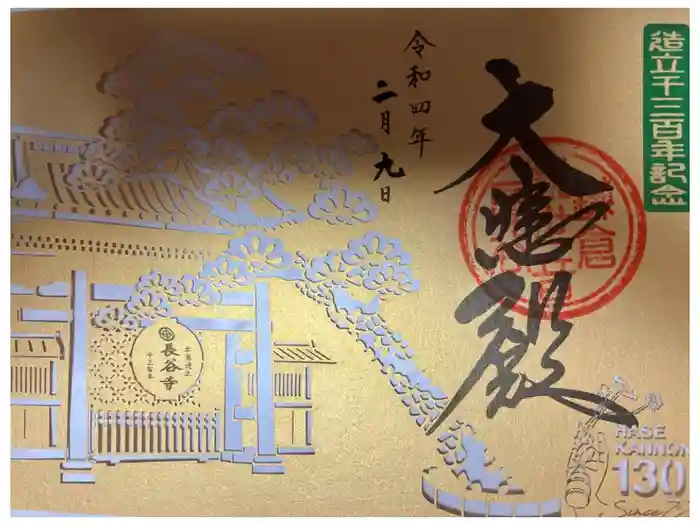 造立千三百年記念
大悲殿
令和四年
二月九日
本尊造立
長谷寺
千三百年
HASE
KANNON
130
Since 7